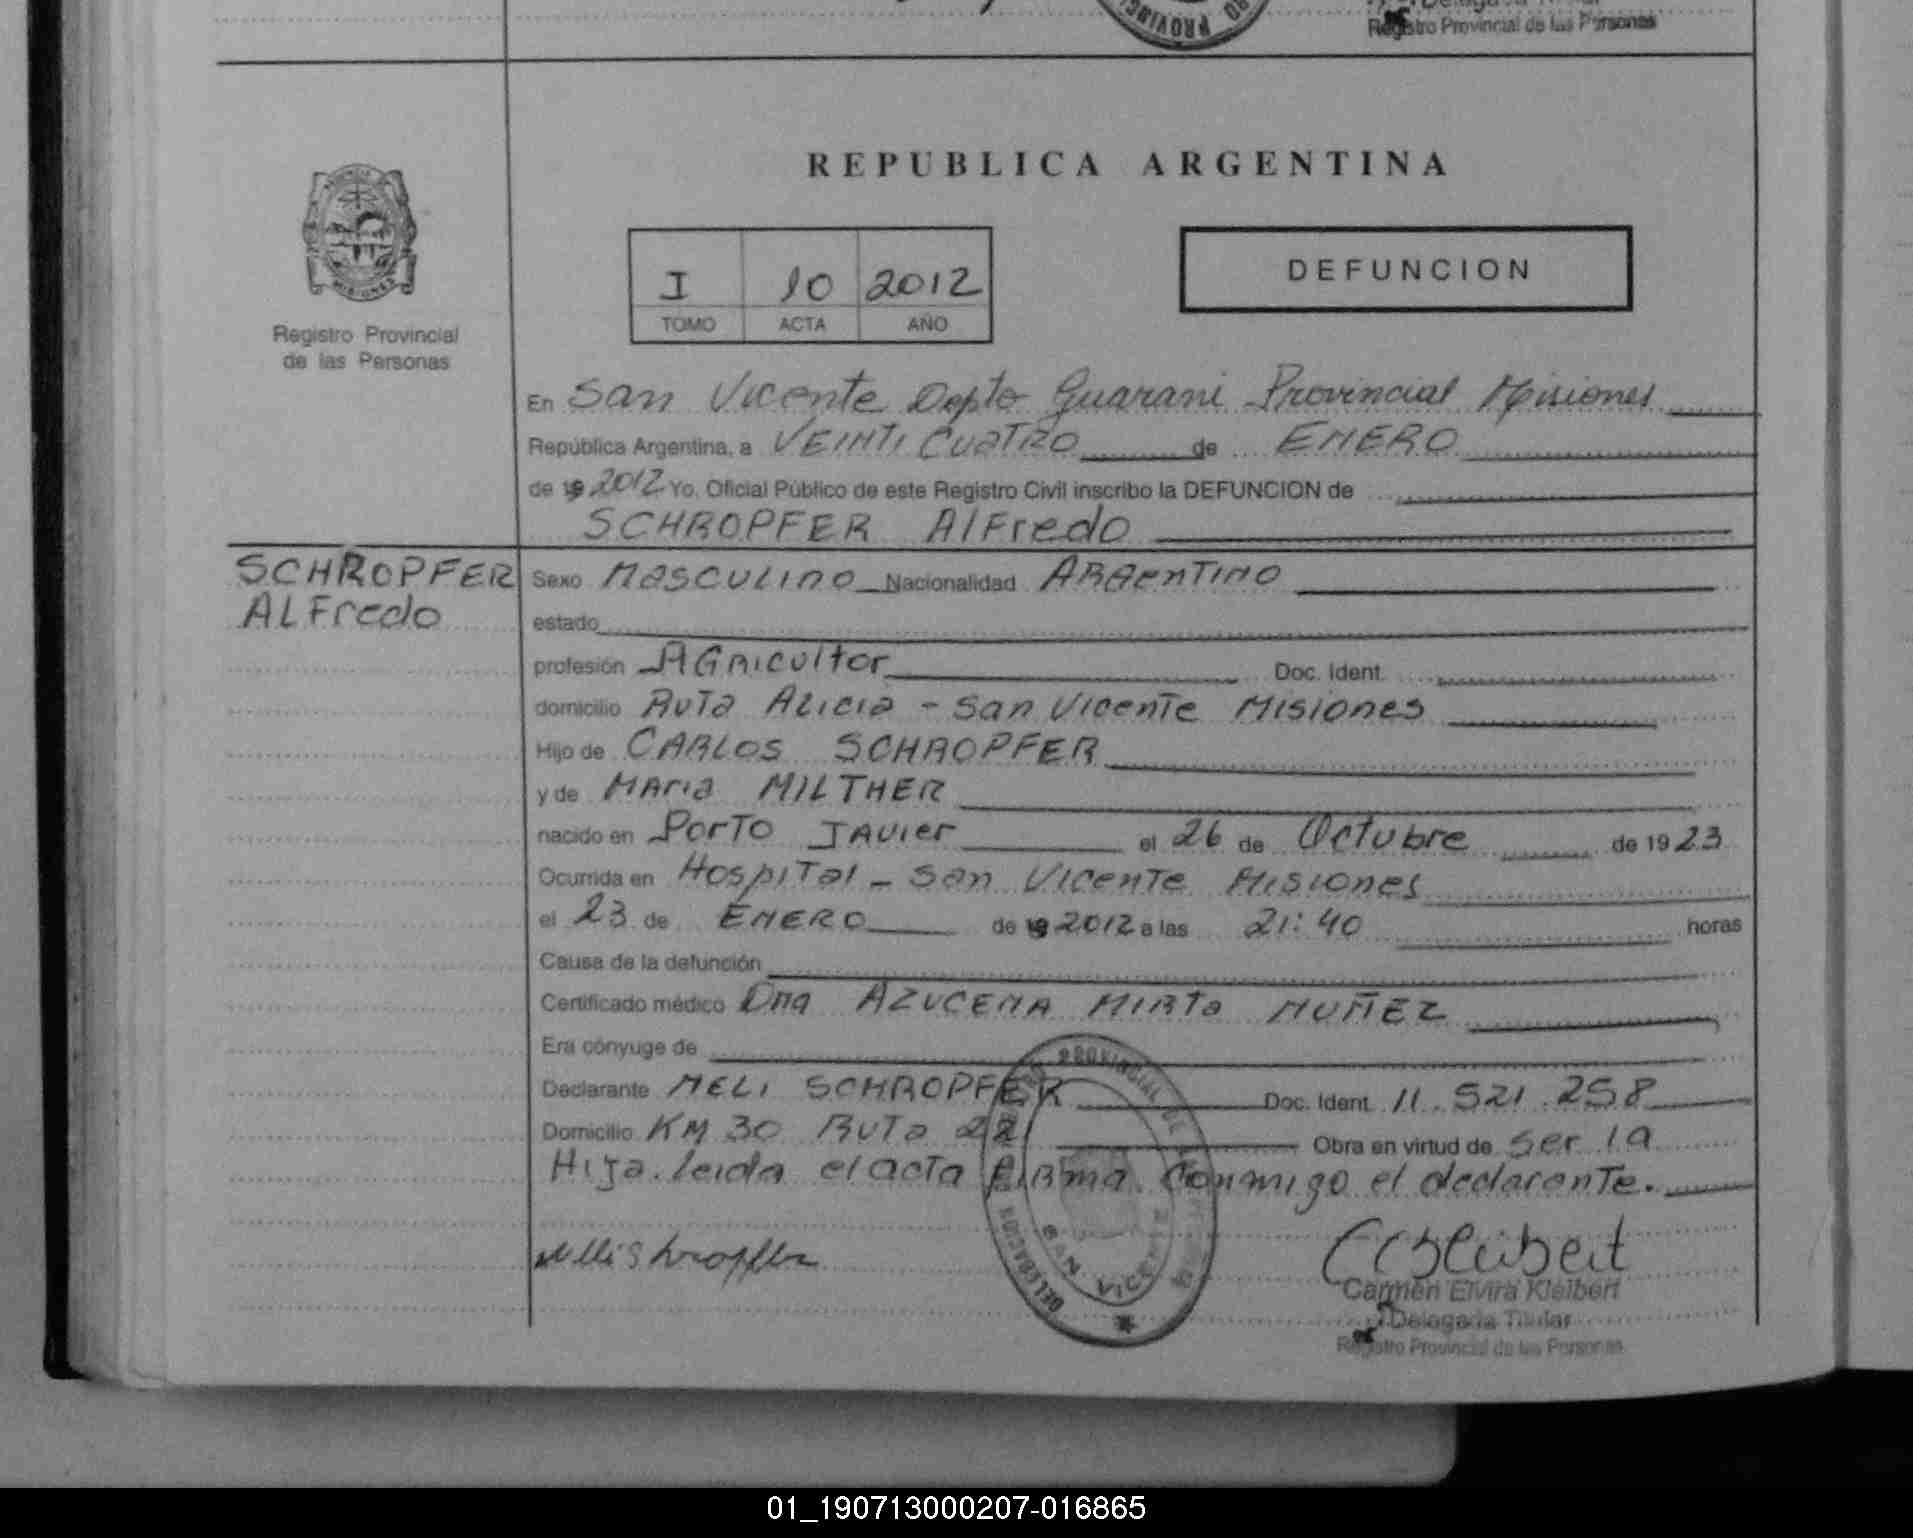 Registro Provincial de las Personas
REPUBLICA ARGENTINA
MISIONES
Registro Provincial
de las Personas
I 10 2012
TOMO ACTA AÑO
DEFUNCION
En San Vicente Depto Guarani Provincial Misiones
República Argentina, a VEINTI CUATRO de ENERO
de 19 2012 Yo, Oficial Público de este Registro Civil inscribo la DEFUNCION de
SCHROPFER AlFredo
SCHROPFER
ALFredo
Sexo MASCULINO Nacionalidad ARGENTINO
estado
profesión AGRICULTOR Doc. Ident.
domicilio RUTA ALICIA - San Vicente MISIONES
Hijo de CARLOS SCHROPFER
y de MARIA MILTHER
nacido en PORTO JAVIER el 26 de Octubre de 1923
Ocurrida en HOSPITAL - San Vicente MISIONES
el 23 de ENERO de 19 2012 a las 21:40 horas
Causa de la defunción
Certificado médico Dra AZUCENA MIRTA MUÑEZ
Era cónyuge de
Declarante NELI SCHROPFER Doc. Ident. 11.521.258
Domicilio KM 30 RUTA 221 Obra en virtud de ser la
Hija. leida el acta FIRMA conmigo el declarante.
DELEGACION SAN VICENTE
Carmen Elvira Kleibert
Delegada Titular
Registro Provincial de las Personas
01_190713000207-016865